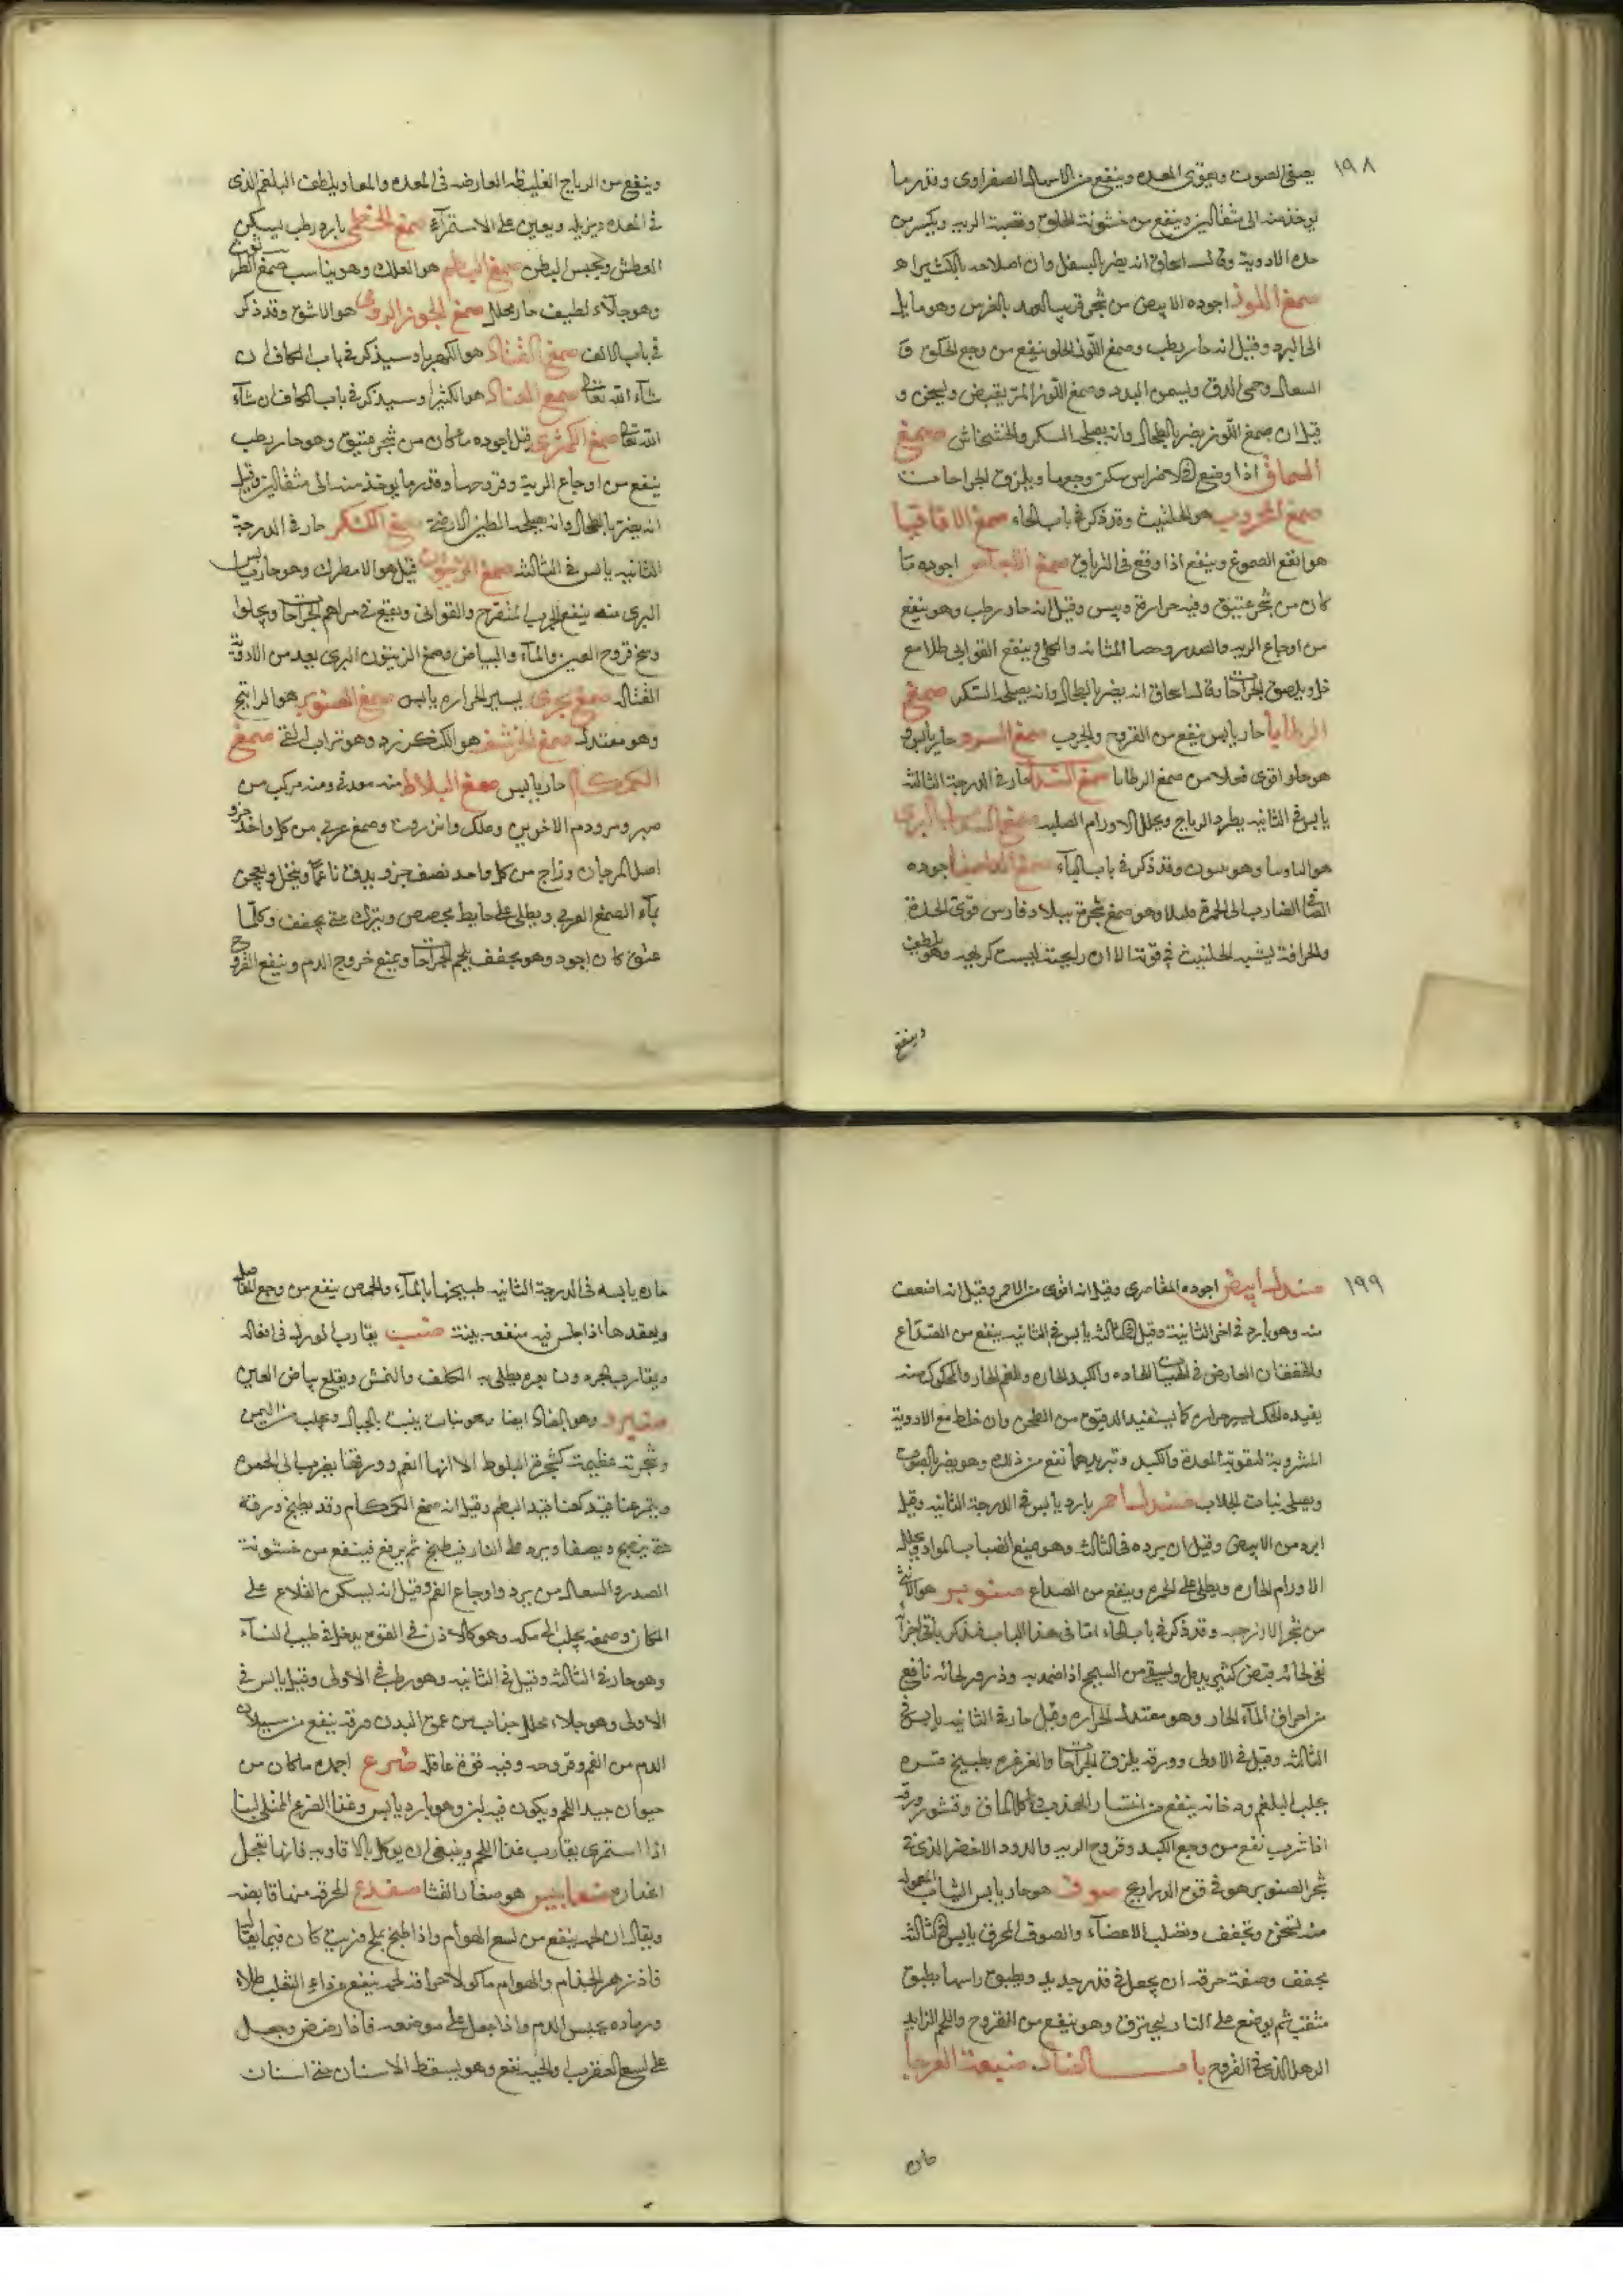 ١٩٨
يصفى الصوت ويقوى المعده وينفع من الاسهال الصفراوى وقدر ما
يوخذ منه الى مثقالين وينفع من خشونة الحلق وقصبة الريه ويكسر من
حده الادوية وقال اسحاق انه يضر بالسفل وان اصلاحه بالكثيرا
صمغ اللوز اجوده الابيض من شجر قريب العهد بالغرس وهو مايل
الى البرد وقيل انه حار رطب وصمغ اللوز الحلو ينفع من وجع الحلق و
السعال وحمى الدق ويسمن البدن وصمغ اللوز المر يقبض ويسخن و
قيل ان صمغ اللوز يضر بالطحال وانه يصلحه السكر والخشخاش صمغ
السماق اذا وضع على الاضراس سكن وجعها ويلزق الجراحات
صمغ المحروث هو الحلتيت وقد ذكر فى باب الحاء صمغ الاقاقيا
هو انفع الصموغ وينفع اذا وقع فى الترياق صمغ الاجاص اجوده ما
كان من شجر عتيق وفيه حرارة ويبس وقيل انه حار رطب وهو ينفع
من اوجاع الريه والصدر وحصا المثانه والكلى وينفع القوابى طلا مع
خل ويلصق الجراحات قال اسحاق انه يضر بالطحال وانه يصلحه السكر صمغ
حار يابس ينفع من القروح والجرب صمغ السرو حار يابس و
هو حار اقوى فعلا من صمغ حار فى الدرجة الثالثة
يابس فى الثانيه يطرد الرياج ويحلل الاورام الصلبه صمغ السذاب البرى
هو وقد ذكر فى باب اجوده
الصافى الضارب الى الحمرة قليلا وهو صمغ شجرة ببلاد فارس قوى الحدة
والحرافة يشبه الحلتيت فى قوته الا ان رايحته ليست كريهه وهو يلطف
وينفع
وينفع من الرياج الغليظه العارضه فى المعده والمعا ويلطف البلغم الذى
فى المعده ويزيله ويعين على الاستمراء صمغ الخطمى بارد رطب يسكن
العطش ويحبس البطن صمغ البطم هو العلك وهو يناسب صمغ الطرثوث
وهو جلاء لطيف حار محلل صمغ الجوز الرومى هو الاشق وقد ذكر
فى باب الالف صمغ هو الكهربا وسيذكر فى باب الكاف ان
شاء الله تعالى صمغ القتاد هو الكثيرا وسيذكر فى باب الكاف ان شاء
الله تعالى صمغ الكمثرى قيل اجوده ما كان من شجر عتيق وهو حار رطب
ينفع من اوجاع الرية وقروحها وقدر ما يوخذ منه الى مثقالين وقيل
انه يضر بالطحال وانه يصلحه الطين الارمنى صمغ الكنكر حار فى الدرجة
الثانيه يابس فى الثالثه صمغ الزيتون قيل هو الاصطرك وهو حار يابس
البرى منه ينفع الجرب المتقرح والقوابى ويقع فى مراهم الجراحات ويجلوا
وسخ قروح العين والماء والبياض وصمغ الزيتون البرى يعد من الادوية
القتاله صمغ يسير الحراره يابس صمغ الصنوبر هو الراتينج
وهو معتدل صمغ الحرشف هو الكنكر زد وهو تراب القى صمغ
الكمكام حار يابس صمغ البلاط منه معدنى ومنه مركب من
صبر ومر ودم الاخوين وعلك وانزروت وصمغ عربى من كل واحد جزو
اصل المرجان وزاج من كل واحد نصف جزو يدق ناعما وينخل ويعجن
بماء الصمغ العربى ويطلى على حايط مجصص ويترك حتى يجفف وكلما
عتق كان اجود وهو يجفف يلحم الجراحات ويمنع خروج الدم وينفع القروح
١٩٩
صندل ابيض اجوده المقاصرى وقيل انه اقوى من الاحمر وقيل انه اضعف
منه وهو بارد فى اخر الثانية وقيل فى الثالثه يابس فى الثانيه ينفع من الصداع
والخفقان العارض فى الحميات الحاده والكبد الحاره والفم الحار والمحكوك منه
يفيده الحك يسير حراره كما يستفيد الدقيق من الطحن وان خلط مع الادوية
المشروبة لتقوية المعدة والكبد وتبريدهما نفع من ذلك وهو يضر بالصوت
ويصلى نبات الجلاب صندل احمر بارد يابس فى الدرجة الثانيه وقيل
ابرد من الابيض وقيل ان برده فى الثالثه وهو يمنع انصباب المواد ويحلل
الاورام الحاره ويطلى على الحمره وينفع من الصداع صنوبر هو الانثى
من شجر الارز حبه وقد ذكر فى باب الحاء اما فى هذا الباب فنذكر باقى اجزائه
فى لحائه قبض كثير يدمل ويسقى من السحج اذا ضمد به وذرور لحائه نافع
من احراق الماء الحار وهو معتدل الحراره وقيل حار فى الثانيه يابس فى
الثالثه وقيل فى الاولى وورقه يلزق الجراحات والغرغره بطبيخ قشره
يجلب البلغم ودخانه ينفع من انتشار الهدب وتاكل الماق وقشور ورقه
اذا شرب نفع من وجع الكبد وقروح الريه والدود الاخضر الذى فى
شجر الصنوبر هو فى قوه الذراريح صوف هو حار يابس الثياب المعموله
منه تسخن وتجفف وتصلب الاعضاء والصوف المحرق يابس فى الثالثه
يجفف وصفة حرقه ان يجعل فى قدر جديد ويطبق راسها بطبق
مثقب ثم يوضع على النار ليحترق وهو ينفع من القروح واللحم الزايد
الرهل الذى فى القروح باب الضاد ضبعة العرجا
حاره
حاره يابسه فى الدرجة الثانيه طبيخها بالماء والحمص ينفع من وجع المفاصل
وبعقدها اذا جلس فيه منفعه بينة ضب يقارب الورل فى افعاله
ويقارب الحردون بعره يطلى به الكلف والنمش ويقلع بياض العين
ضرو وهو بالضاد ايضا وهو نبات ينبت بالجبال ويجلب من اليمن
وشجرته عظيمة كشجرة البلوط الا انها انعم وورقها يضرب الى الحمره
ويثمر عناقيد كعناقيد البطم وقيل انه صمغ الكمكام وقد يطبخ ورقه
حتى ينضج ويصفا ويرد على النار فيطبخ ثم يرفع فينفع من خشونة
الصدر والسعال من برد واوجاع الفم وقيل انه يسكن القلاع على
المكان وصمغه يجلب الى مكه وهو كاللاذن فى القوه يدخل فى طيب النساء
وهو حار فى الثالثه وقيل فى الثانيه وهو رطب فى الاولى وقيل يابس فى
الاولى وهو جلاء محلل جذاب من عمق البدن ورقه ينفع من سيلان
الدم من الفم وقروحه وفيه قوة عاقله ضرع اجوده ما كان من
حيوان جيد اللحم ويكون فيه لبن وهو بارد يابس وغذا الضرع الممتلى لبنا
اذا استمرى يقارب غذا اللحم وينبغى ان يوكل بالافاويه فانها تعجل
انحداره ضغابيس هو صغار القثا ضفدع المحرقه منها قابضه
ويقال ان لحمه ينفع من لسع الهوام واذا طبخ بملح وزيت كان فيما يقال
فادزهر الجذام والهوام ماكولا حراقة لحمه ينفع من داء الثعلب طلاء
ورماده يحبس الدم واذا جعل على موضعه فاذا رضض وجعل
على لسع العقرب والحيه نفع وهو يسقط الاسنان حتى اسنان